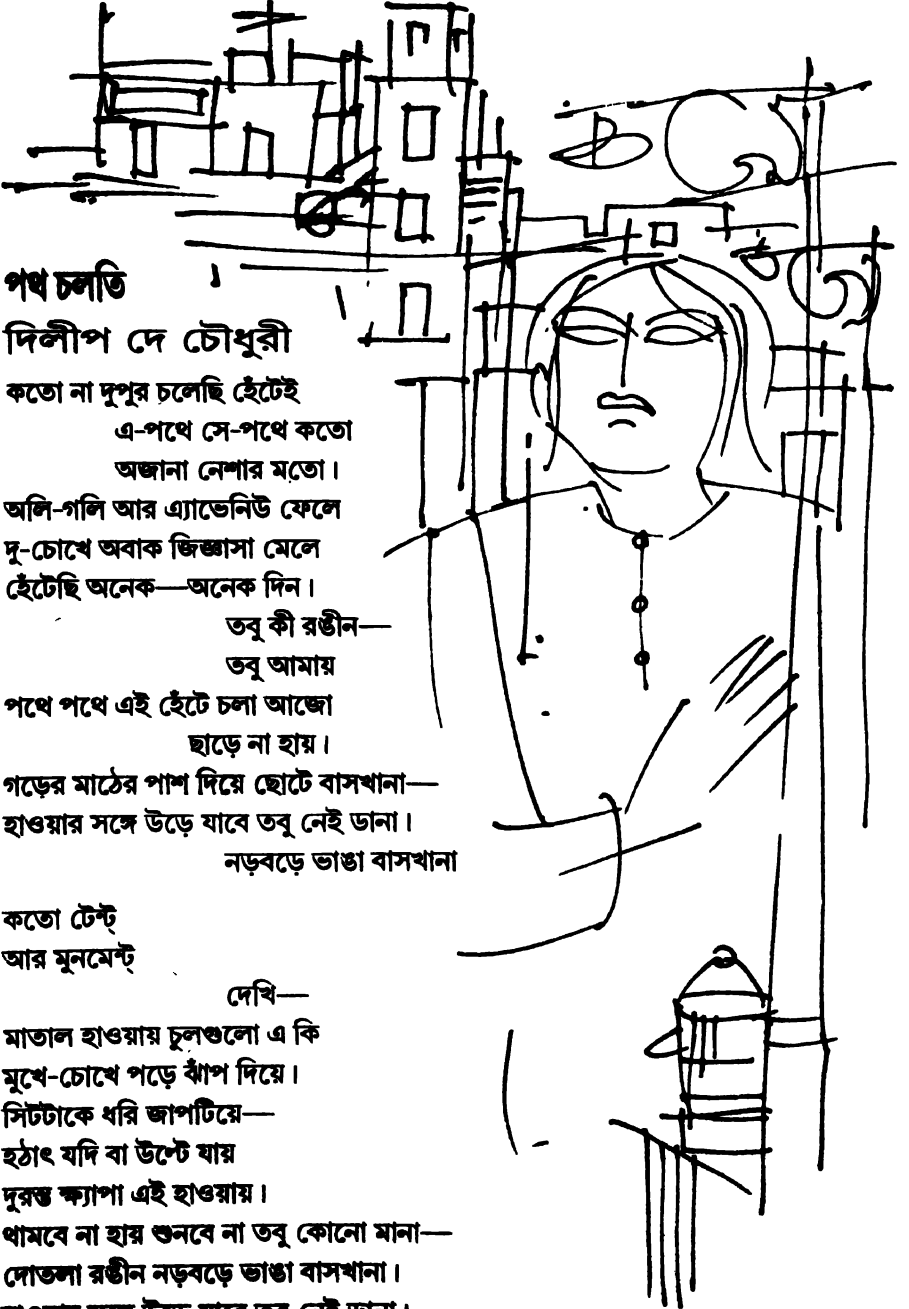 পথ চলতি
দিলীপ দে চৌধুরী
কতো না দুপুর চলেছি হেঁটেই
এ-পথে সে-পথে কতো
অজানা নেশার মতো।
অলি-গলি আর এ্যাভেনিউ ফেলে
দু-চোখে অবাক জিজ্ঞাসা মেলে
হেঁটেছি অনেক—অনেক দিন।
তবু কী রঙীন—
তবু আমায়
পথে পথে এই হেঁটে চলা আজো
ছাড়ে না হায়।
গড়ের মাঠের পাশ দিয়ে ছোটে বাসখানা—
হাওয়ার সঙ্গে উড়ে যাবে তবু নেই ডানা।
নড়বড়ে ভাঙা বাসখানা
কতো টেন্ট্
আর মুনমেন্ট্
দেখি—
মাতাল হাওয়ায় চুলগুলো এ কি
মুখে-চোখে পড়ে ঝাঁপ দিয়ে।
সিটটাকে ধরি জাপটিয়ে—
হঠাৎ যদি বা উল্টে যায়
দুরন্ত ক্ষ্যাপা এই হাওয়ায়।
থামবে না হায় শুনবে না তবু কোনো মানা—
দোতলা রঙীন নড়বড়ে ভাঙা বাসখানা।